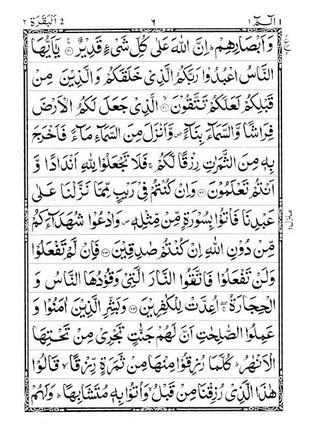 البقرة ٢ ٦ الٓمّٓ ١
وَاَبْصَارِهِمْ اِنَّ اللّٰهَ عَلٰى كُلِّ شَىْءٍ قَدِيْرٌ يٰٓاَيُّهَا
النَّاسُ اعْبُدُوْا رَبَّكُمُ الَّذِىْ خَلَقَكُمْ وَالَّذِيْنَ مِنْ
قَبْلِكُمْ لَعَلَّكُمْ تَتَّقُوْنَ الَّذِىْ جَعَلَ لَكُمُ الْاَرْضَ
فِرَاشًا وَّالسَّمَآءَ بِنَآءً وَّاَنْزَلَ مِنَ السَّمَآءِ مَآءً فَاَخْرَجَ
بِهٖ مِنَ الثَّمَرٰتِ رِزْقًا لَّكُمْ فَلَا تَجْعَلُوْا لِلّٰهِ اَنْدَادًا وَّ
اَنْتُمْ تَعْلَمُوْنَ وَاِنْ كُنْتُمْ فِىْ رَيْبٍ مِّمَّا نَزَّلْنَا عَلٰى
عَبْدِنَا فَاْتُوْا بِسُوْرَةٍ مِّنْ مِّثْلِهٖ وَادْعُوْا شُهَدَآءَكُمْ
مِّنْ دُوْنِ اللّٰهِ اِنْ كُنْتُمْ صٰدِقِيْنَ فَاِنْ لَّمْ تَفْعَلُوْا
وَلَنْ تَفْعَلُوْا فَاتَّقُوا النَّارَ الَّتِىْ وَقُوْدُهَا النَّاسُ وَ
الْحِجَارَةُ اُعِدَّتْ لِلْكٰفِرِيْنَ وَبَشِّرِ الَّذِيْنَ اٰمَنُوْا وَ
عَمِلُوا الصّٰلِحٰتِ اَنَّ لَهُمْ جَنّٰتٍ تَجْرِىْ مِنْ تَحْتِهَا
الْاَنْهٰرُ كُلَّمَا رُزِقُوْا مِنْهَا مِنْ ثَمَرَةٍ رِّزْقًا قَالُوْا
هٰذَا الَّذِىْ رُزِقْنَا مِنْ قَبْلُ وَاُتُوْا بِهٖ مُتَشَابِهًا وَلَهُمْ